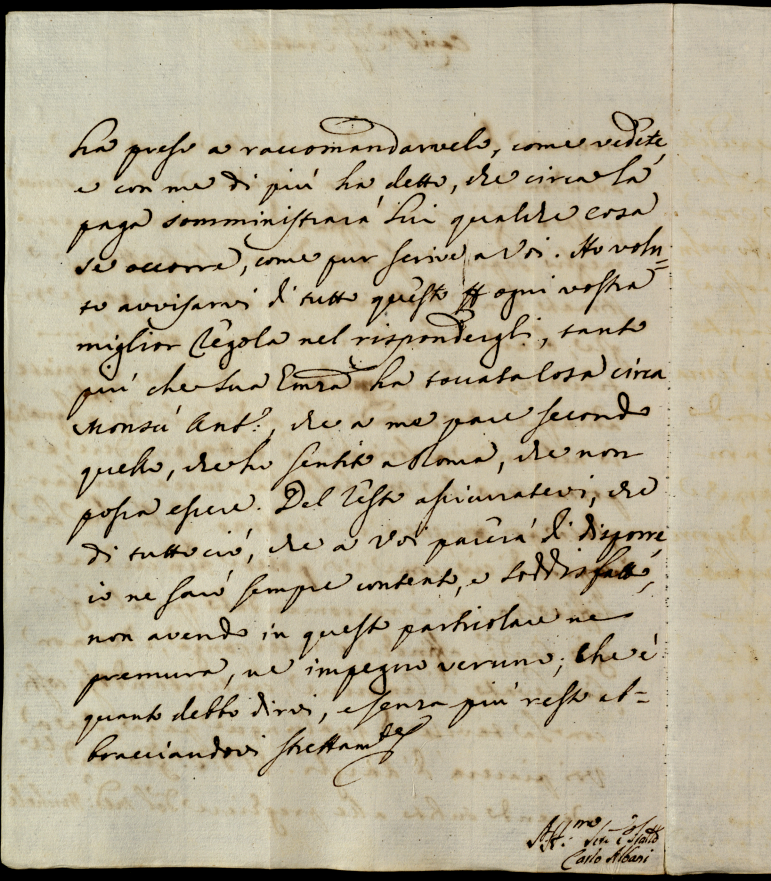 ha preso a raccomandarvelo, come vedete,
e con me di più ha detto, che circa la
paga somministrarà lui qualche cosa
se occorre, come pur scrive a Voi. Ho volu=
to avvisarvi di tutto questo ogni vostra
miglior regola nel rispondergli, tanto
più che Sua Emza ha toccata cosa circa
Monsù Ant.º, che a me pare secondo
quello, che ho sentito a Roma, che non
possa essere. Del resto assicuratevi, che
di tutto ciò, che a Voi parerà di disporre
io ne sarò sempre contento, e soddisfatto,
non avendo in questo particolare ne
premura, ne impegno veruno; che è
quanto debbo dirvi, e senza più resto ab=
bracciandovi strettamte
Aff.mo
Carlo Albani